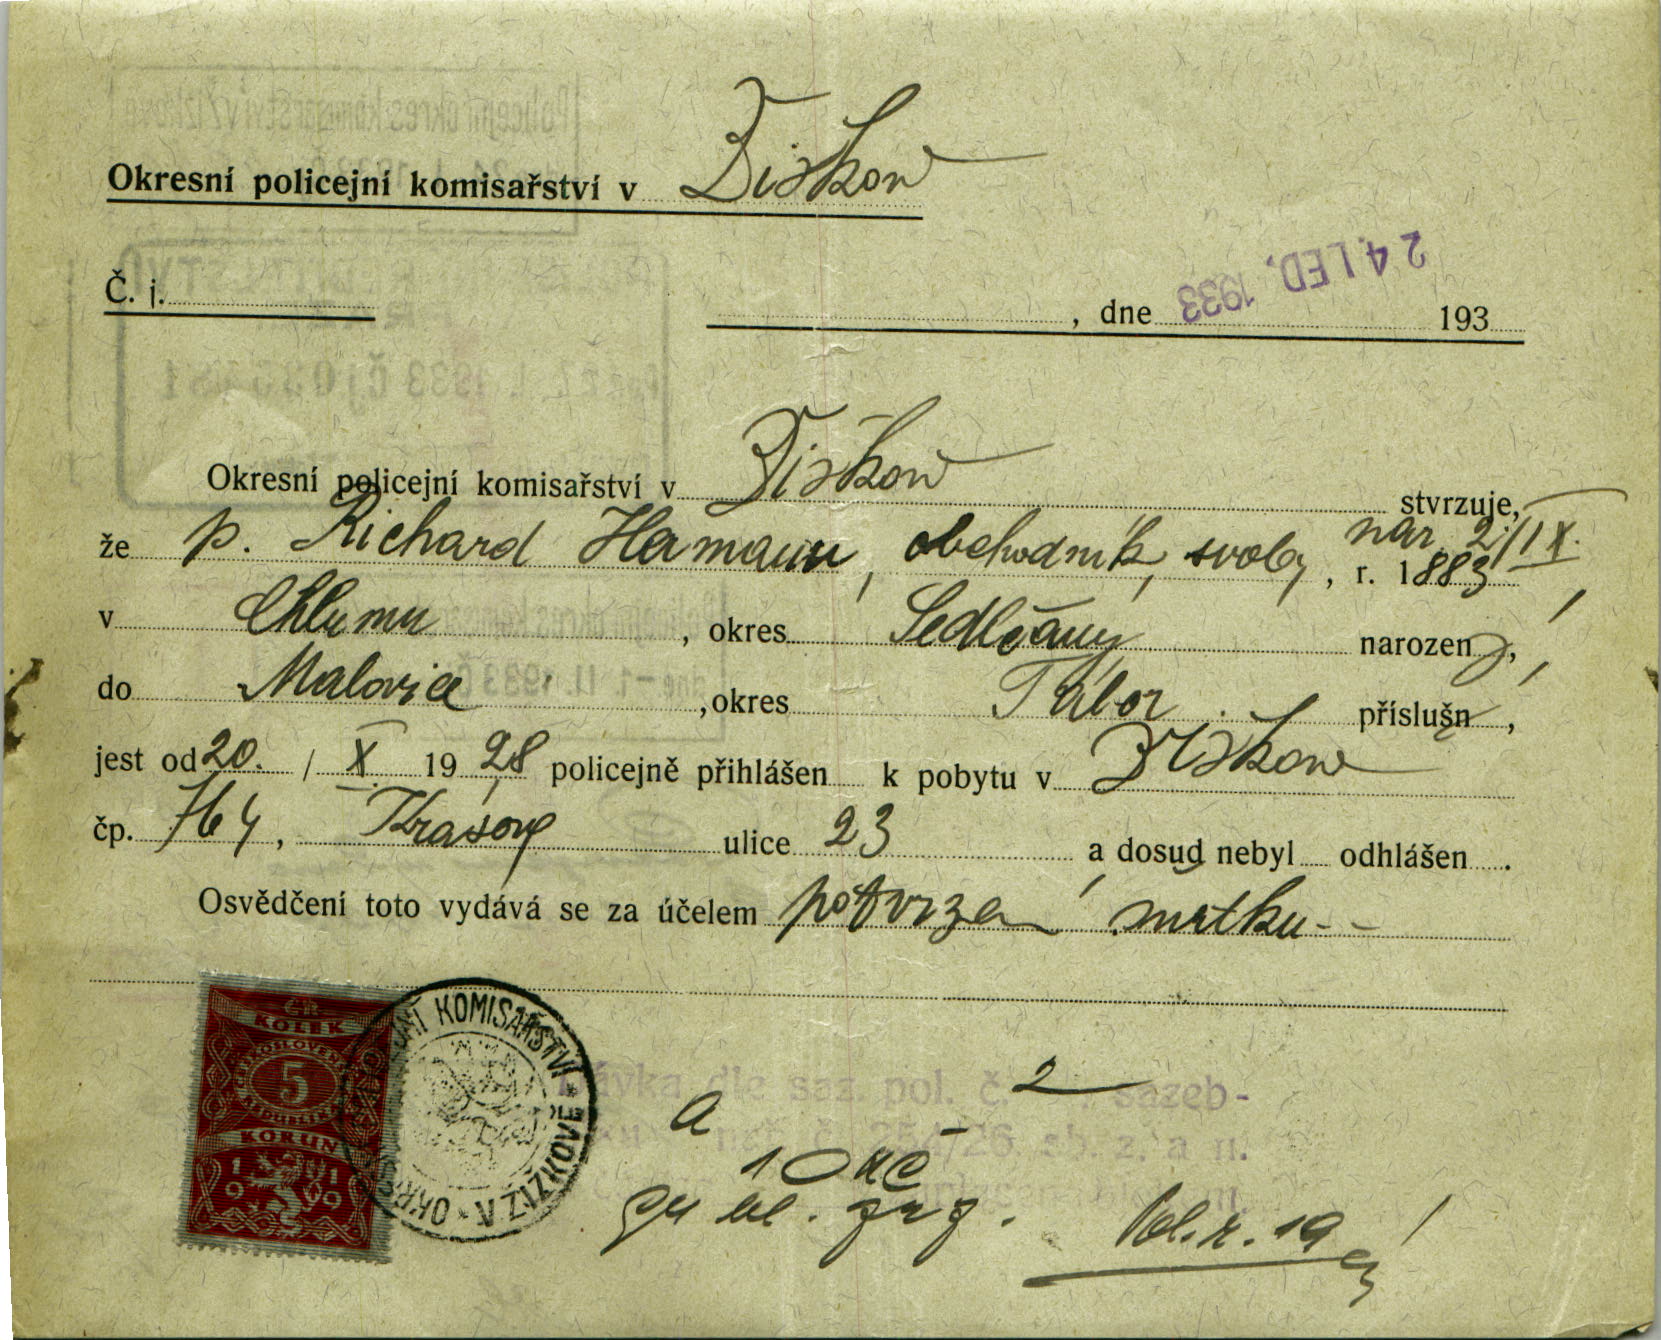 Okresní policejní komisařství v Žižkow
Č. j.
, dne 24. LED. 1933 193
Okresní policejní komisařství v Žižkow stvrzuje,
že p. Richard Hermann, obchodník, svob, nar 2/IX. r. 1883
v Chlumu, okres Sedlčany narozený,
do Malovice, okres Tábor příslušn,
jest od 20. / X. 1928 policejně přihlášen k pobytu v Žižkow
čp. 764, Krásova ulice 23 a dosud nebyl odhlášen.
Osvědčení toto vydává se za účelem
KOLEK
5
KORUN
1919
KOMISAŘSTVÍ V ŽIŽKOVĚ
dle saz. pol. č. 2 sazeb-
č. 254/26 sb. z. a n.
a
10 Kč